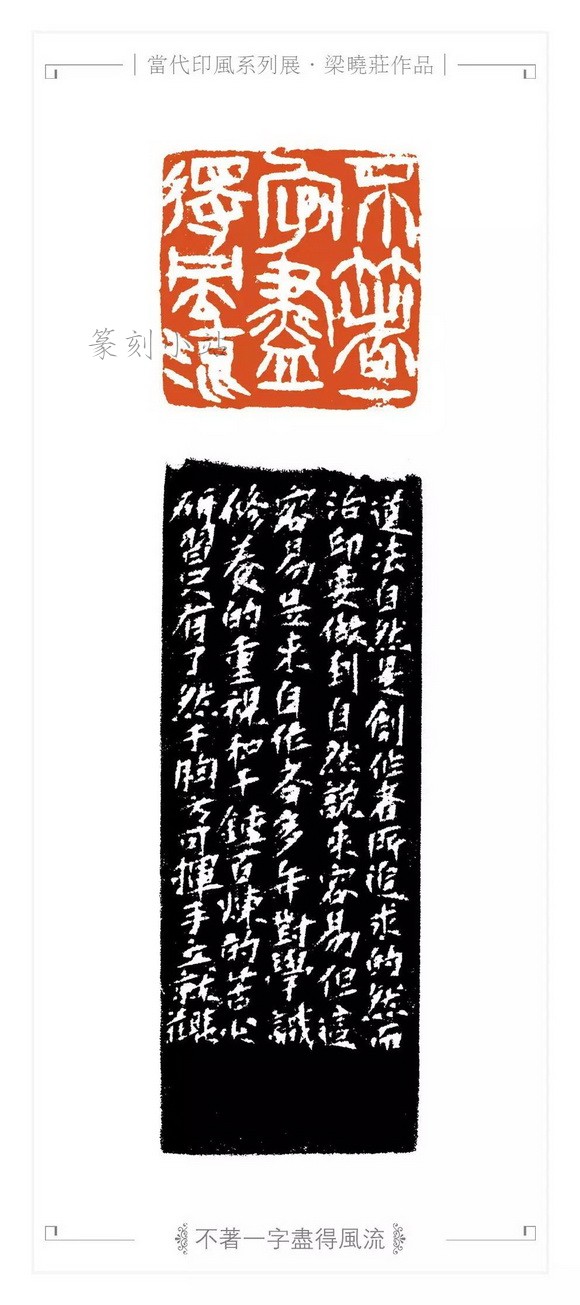 當代印風系列展·梁曉莊作品
不著一
字盡
得風流
篆刻小站
道法自然是創作者所追求的然而
治印要做到自然說來容易但這
容易是来自作者多年對學識
修養的重視和千錘百煉的苦心
研習只有了然于胸方可揮手立就
不著一字盡得風流